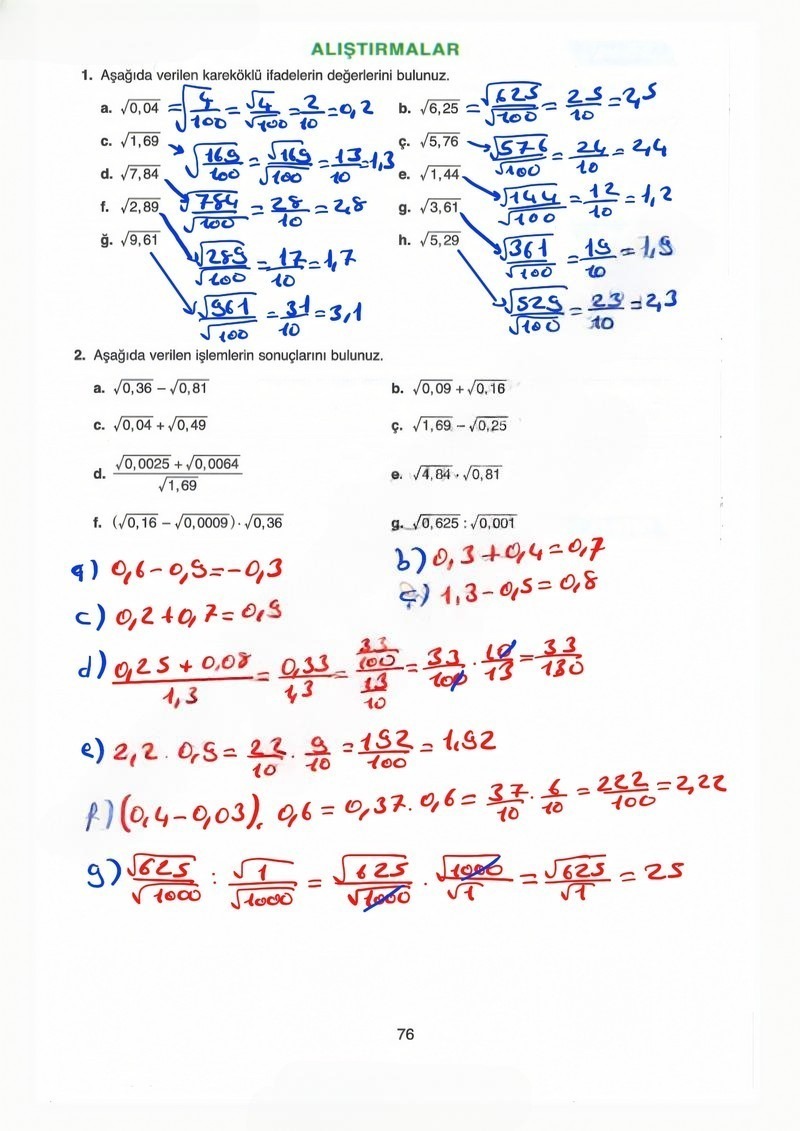 ALIŞTIRMALAR
1. Aşağıda verilen kareköklü ifadelerin değerlerini bulunuz.
a. √0,04 = √4/√100 = √4/√100 = 2/10 = 0,2
b. √6,25 = √625/√100 = 25/10 = 2,5
c. √1,69 √169/√100 = √169/√100 = 13/10 = 1,3
ç. √5,76 √576/√100 = 24/10 = 2,4
d. √7,84 √784/√100 = 28/10 = 2,8
e. √1,44 √144/√100 = 12/10 = 1,2
f. √2,89 √289/√100 = 17/10 = 1,7
g. √3,61 √361/√100 = 19/10 = 1,9
ğ. √9,61 √961/√100 = 31/10 = 3,1
h. √5,29 √529/√100 = 23/10 = 2,3
2. Aşağıda verilen işlemlerin sonuçlarını bulunuz.
a. √0,36 − √0,81
b. √0,09 + √0,16
c. √0,04 + √0,49
ç. √1,69 − √0,25
d. (√0,0025 + √0,0064)/√1,69
e. √4,84 · √0,81
f. (√0,16 − √0,0009) · √0,36
g. √0,625 : √0,001
a) 0,6 − 0,9 = −0,3
b) 0,3 + 0,4 = 0,7
c) 0,2 + 0,7 = 0,9
ç) 1,3 − 0,5 = 0,8
d) (0,25 + 0,08)/1,3 = 0,33/1,3 = (33/100)/(13/10) = 33/100 · 10/13 = 33/130
e) 2,2 · 0,9 = 22/10 · 9/10 = 192/100 = 1,92
f) (0,4 − 0,03) . 0,6 = 0,37 . 0,6 = 37/10 · 6/10 = 222/100 = 2,22
g) √625/√1000 : √1/√1000 = √625/√1000 · √1000/√1 = √625/√1 = 25
76